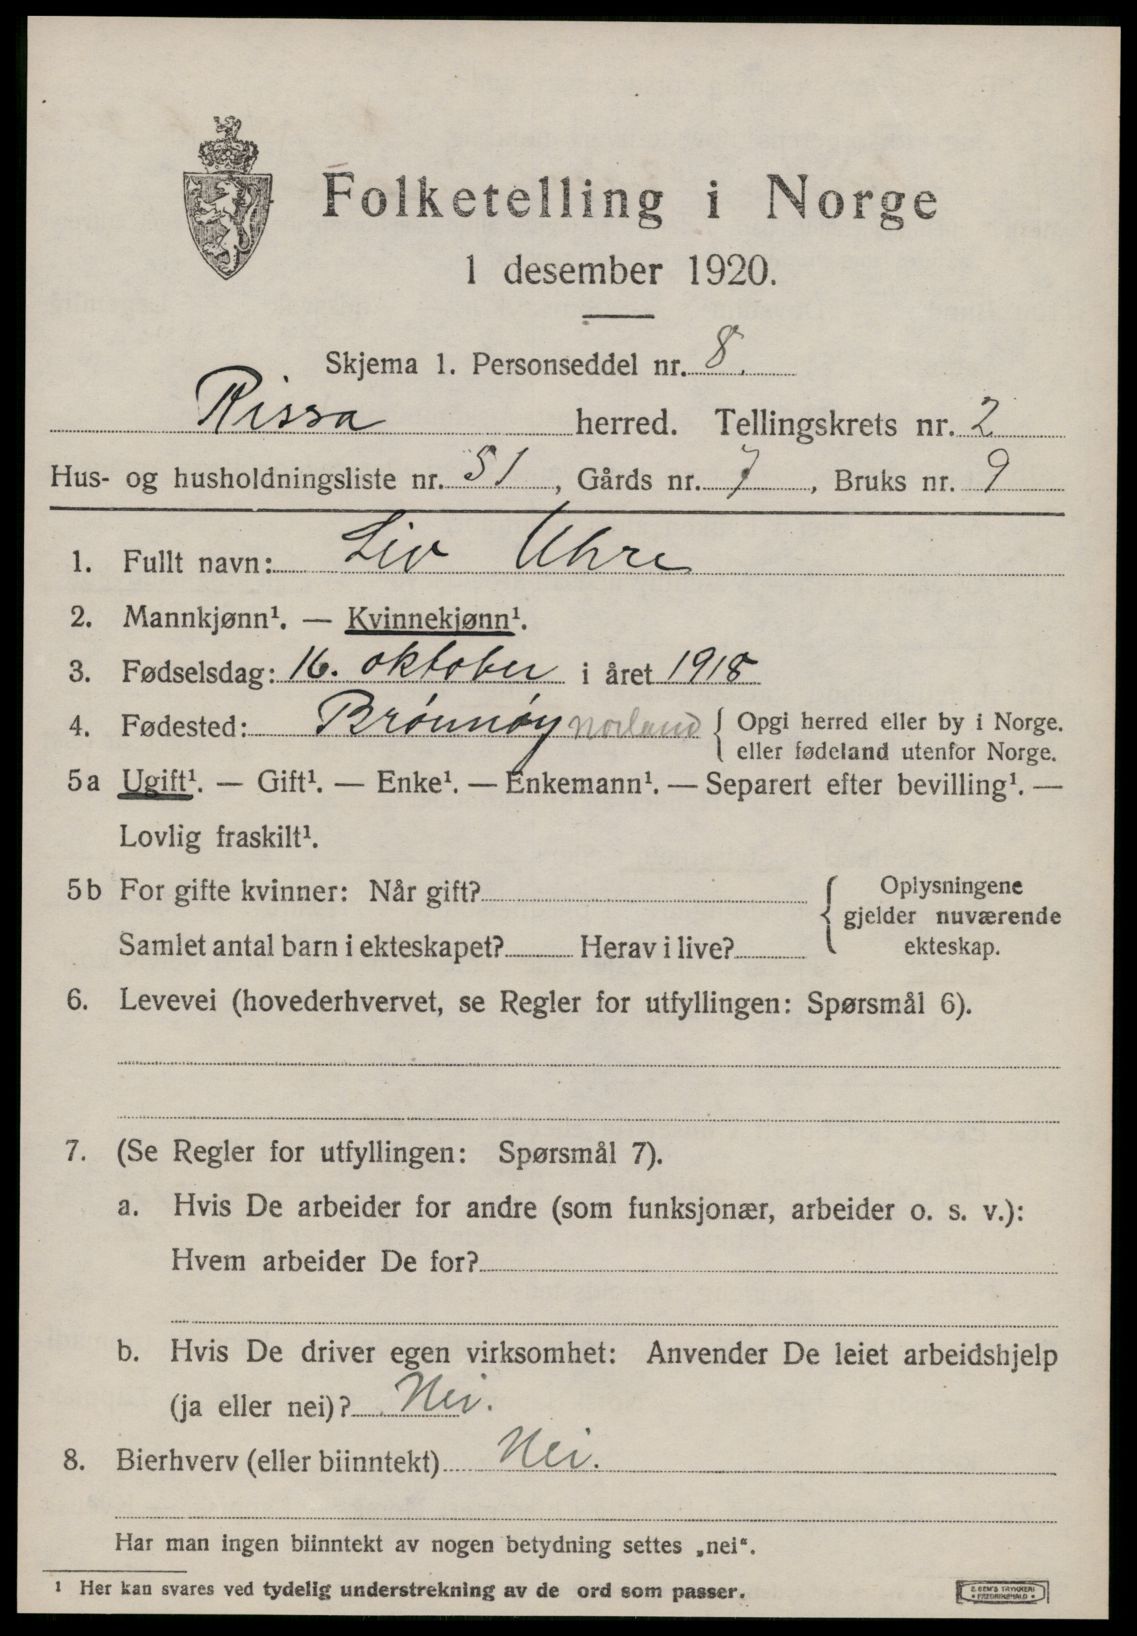 Folketelling i Norge
1 desember 1920.
Skjema 1. Personseddel nr. 8.
Rissa herred. Tellingskrets nr. 2
Hus- og husholdningsliste nr. 51, Gårds nr. 7, Bruks nr. 9
1. Fullt navn: Liv Uhre
2. Mannkjønn¹. — Kvinnekjønn¹.
3. Fødselsdag: 16. oktober i året 1918
4. Fødested: Brönnöy Norland { Opgi herred eller by i Norge.
eller fødeland utenfor Norge.
5a Ugift¹. — Gift¹. — Enke¹. — Enkemann¹. — Separert efter bevilling¹. —
Lovlig fraskilt¹.
5b For gifte kvinner: Når gift? { Oplysningene
gjelder nuværende
Samlet antal barn i ekteskapet? Herav i live? ekteskap.
6. Levevei (hovederhvervet, se Regler for utfyllingen: Spørsmål 6).
7. (Se Regler for utfyllingen: Spørsmål 7).
a. Hvis De arbeider for andre (som funksjonær, arbeider o. s. v.):
Hvem arbeider De for?
b. Hvis De driver egen virksomhet: Anvender De leiet arbeidshjelp
(ja eller nei)? Nei.
8. Bierhverv (eller biinntekt) Nei.
Har man ingen biinntekt av nogen betydning settes „nei“.
¹ Her kan svares ved tydelig understrekning av de ord som passer.
E. SEM'S TRYKKERI
• FREDRIKSHALD •